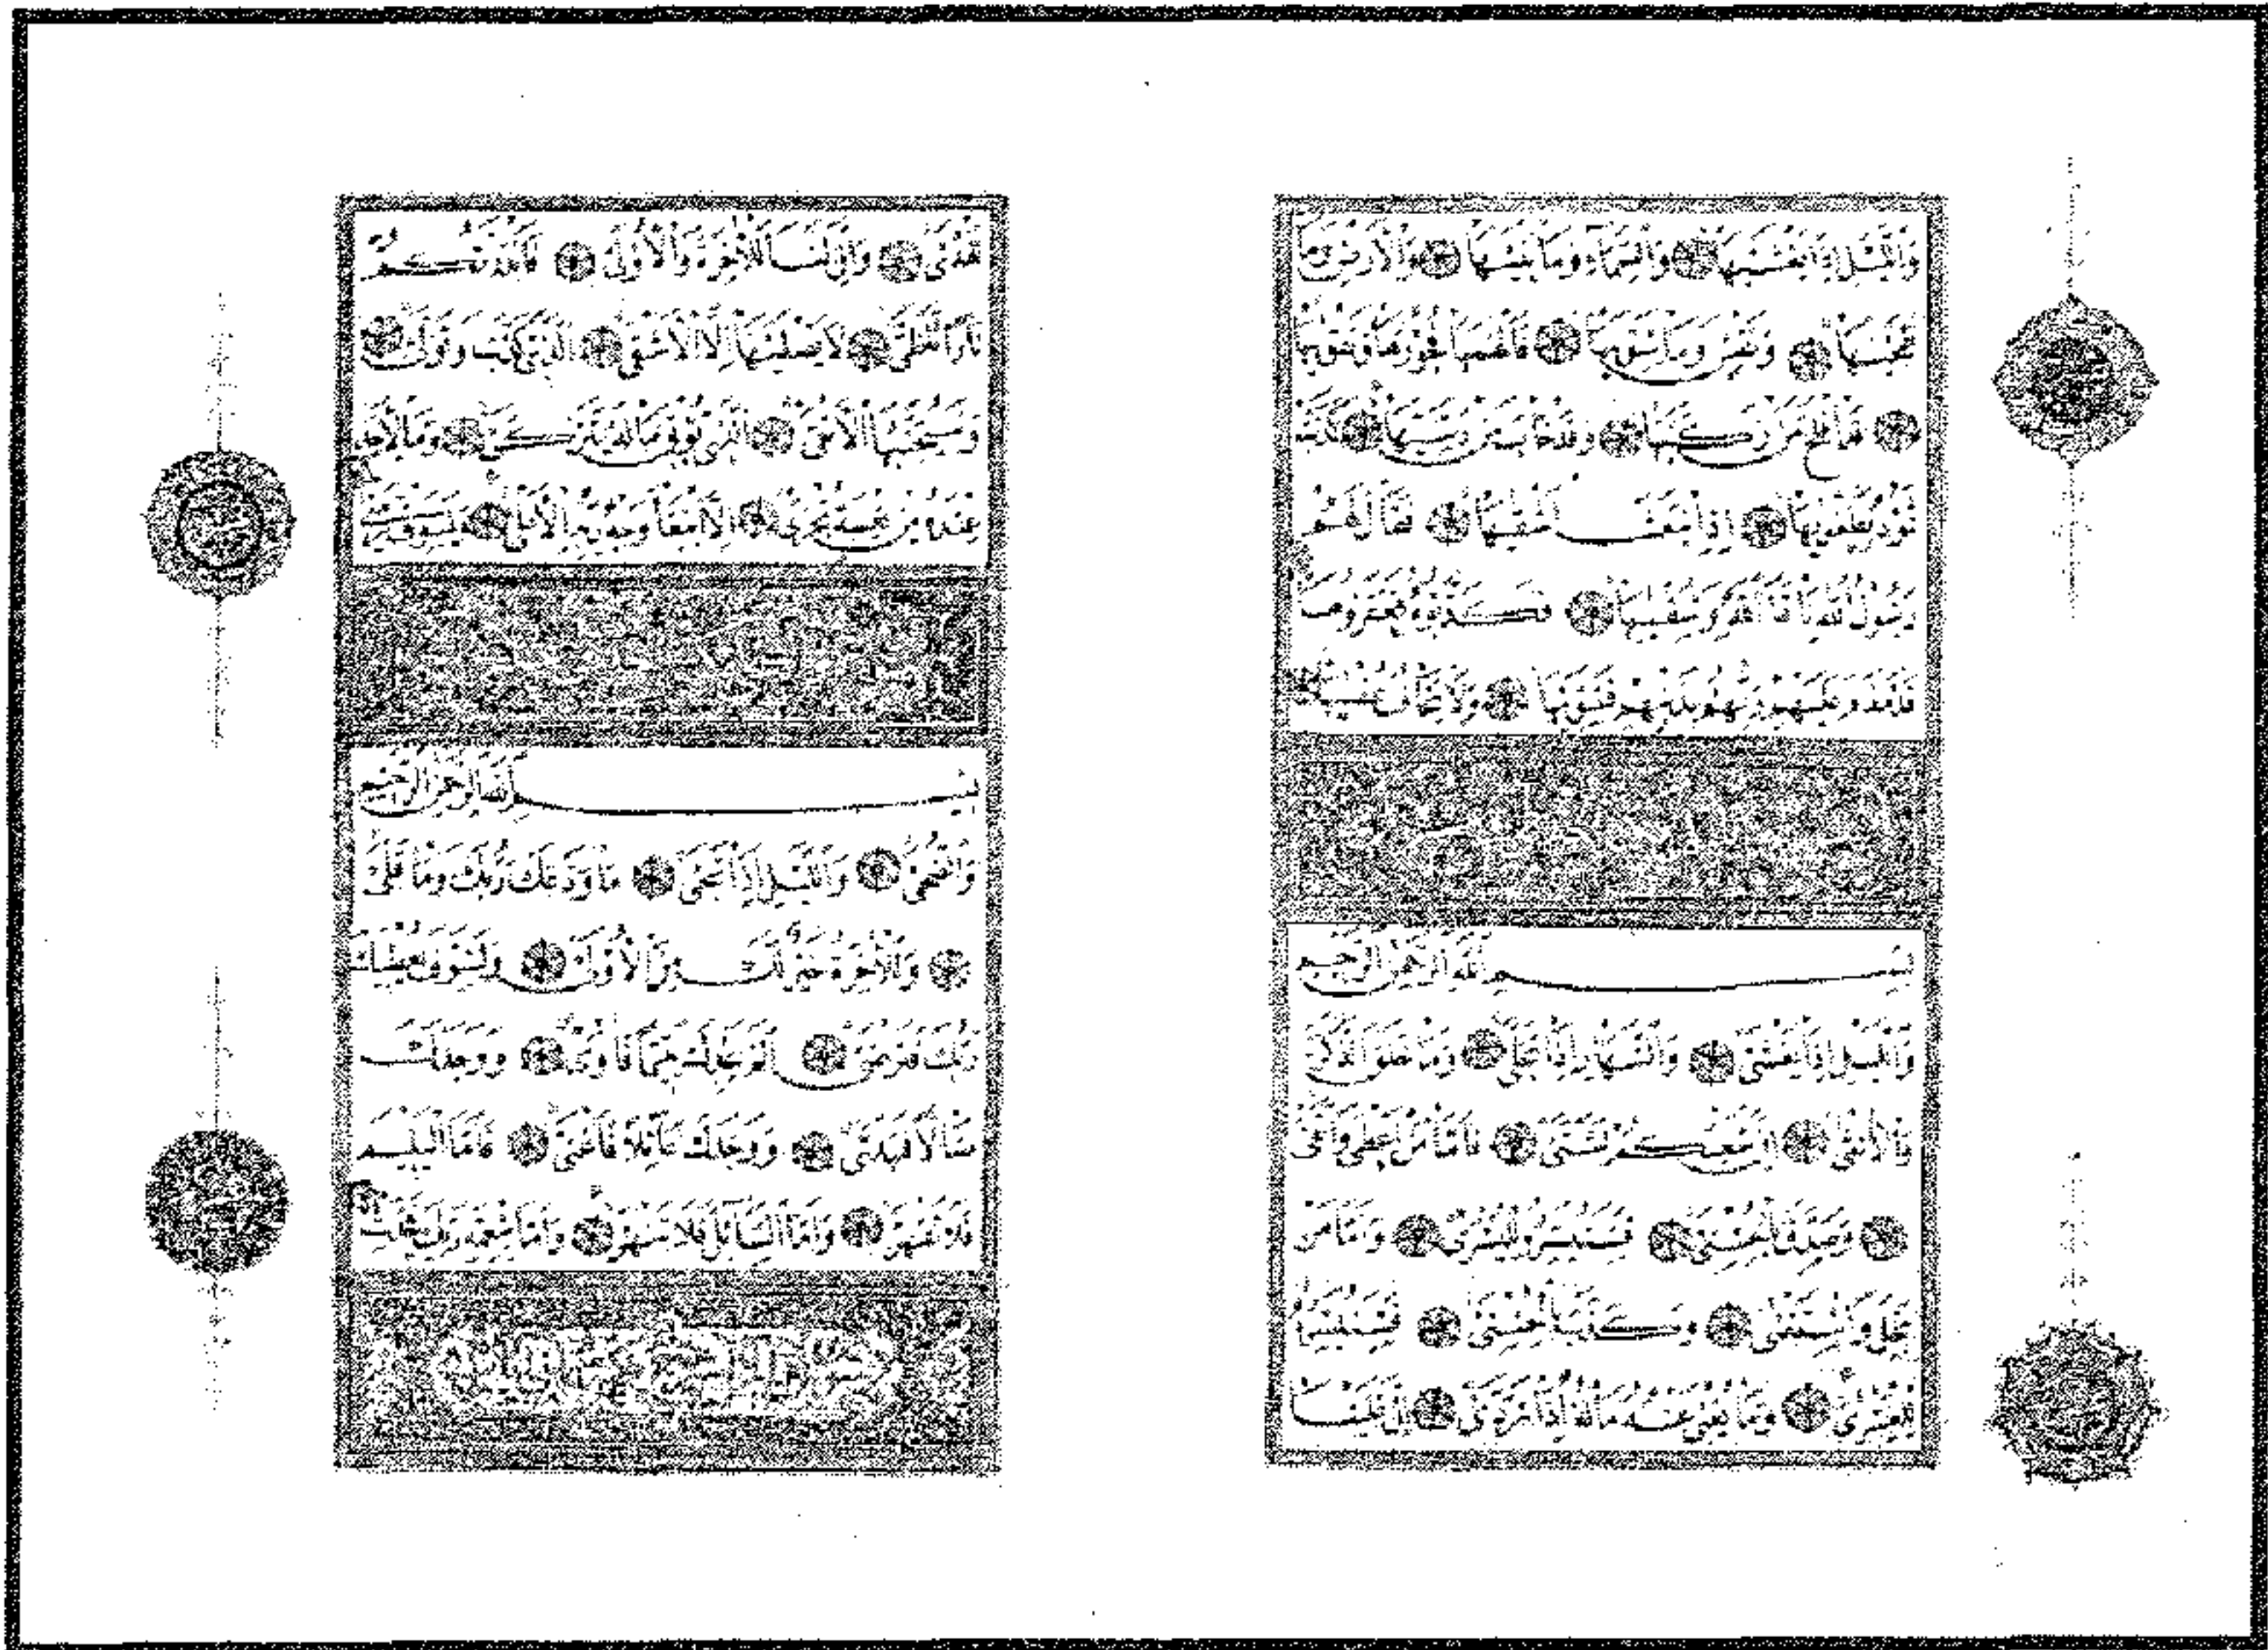 وَالَّيْلِ إِذَا يَغْشٰيهَا وَالسَّمَاءِ وَمَا بَنٰيهَا وَالْأَرْضِ وَمَا
طَحٰيهَا وَنَفْسٍ وَمَا سَوّٰيهَا فَأَلْهَمَهَا فُجُورَهَا وَتَقْوٰيهَا
قَدْ أَفْلَحَ مَنْ زَكّٰيهَا وَقَدْ خَابَ مَنْ دَسّٰيهَا كَذَّبَتْ
ثَمُودُ بِطَغْوٰيهَا إِذِ انْبَعَثَ أَشْقٰيهَا فَقَالَ لَهُمْ
رَسُولُ اللّٰهِ نَاقَةَ اللّٰهِ وَسُقْيٰيهَا فَكَذَّبُوهُ فَعَقَرُوهَا
فَدَمْدَمَ عَلَيْهِمْ رَبُّهُمْ بِذَنْبِهِمْ فَسَوّٰيهَا وَلَا يَخَافُ عُقْبٰيهَا
بِسْمِ اللّٰهِ الرَّحْمٰنِ الرَّحِيمِ
وَالَّيْلِ إِذَا يَغْشٰى وَالنَّهَارِ إِذَا تَجَلّٰى وَمَا خَلَقَ الذَّكَرَ
وَالْأُنْثٰى إِنَّ سَعْيَكُمْ لَشَتّٰى فَأَمَّا مَنْ أَعْطٰى وَاتَّقٰى
وَصَدَّقَ بِالْحُسْنٰى فَسَنُيَسِّرُهُ لِلْيُسْرٰى وَأَمَّا مَنْ
بَخِلَ وَاسْتَغْنٰى وَكَذَّبَ بِالْحُسْنٰى فَسَنُيَسِّرُهُ
لِلْعُسْرٰى وَمَا يُغْنِي عَنْهُ مَالُهُ إِذَا تَرَدّٰى إِنَّ عَلَيْنَا
لَلْهُدٰى وَإِنَّ لَنَا لَلْآخِرَةَ وَالْأُولٰى فَأَنْذَرْتُكُمْ
نَارًا تَلَظّٰى لَا يَصْلٰيهَا إِلَّا الْأَشْقٰى الَّذِي كَذَّبَ وَتَوَلّٰى
وَسَيُجَنَّبُهَا الْأَتْقٰى الَّذِي يُؤْتِي مَالَهُ يَتَزَكّٰى وَمَا لِأَحَدٍ
عِنْدَهُ مِنْ نِعْمَةٍ تُجْزٰى إِلَّا ابْتِغَاءَ وَجْهِ رَبِّهِ الْأَعْلٰى وَلَسَوْفَ يَرْضٰى
بِسْمِ اللّٰهِ الرَّحْمٰنِ الرَّحِيمِ
وَالضُّحٰى وَالَّيْلِ إِذَا سَجٰى مَا وَدَّعَكَ رَبُّكَ وَمَا قَلٰى
وَلَلْآخِرَةُ خَيْرٌ لَكَ مِنَ الْأُولٰى وَلَسَوْفَ يُعْطِيكَ
رَبُّكَ فَتَرْضٰى أَلَمْ يَجِدْكَ يَتِيمًا فَآوٰى وَوَجَدَكَ
ضَالًّا فَهَدٰى وَوَجَدَكَ عَائِلًا فَأَغْنٰى فَأَمَّا الْيَتِيمَ
فَلَا تَقْهَرْ وَأَمَّا السَّائِلَ فَلَا تَنْهَرْ وَأَمَّا بِنِعْمَةِ رَبِّكَ فَحَدِّثْ